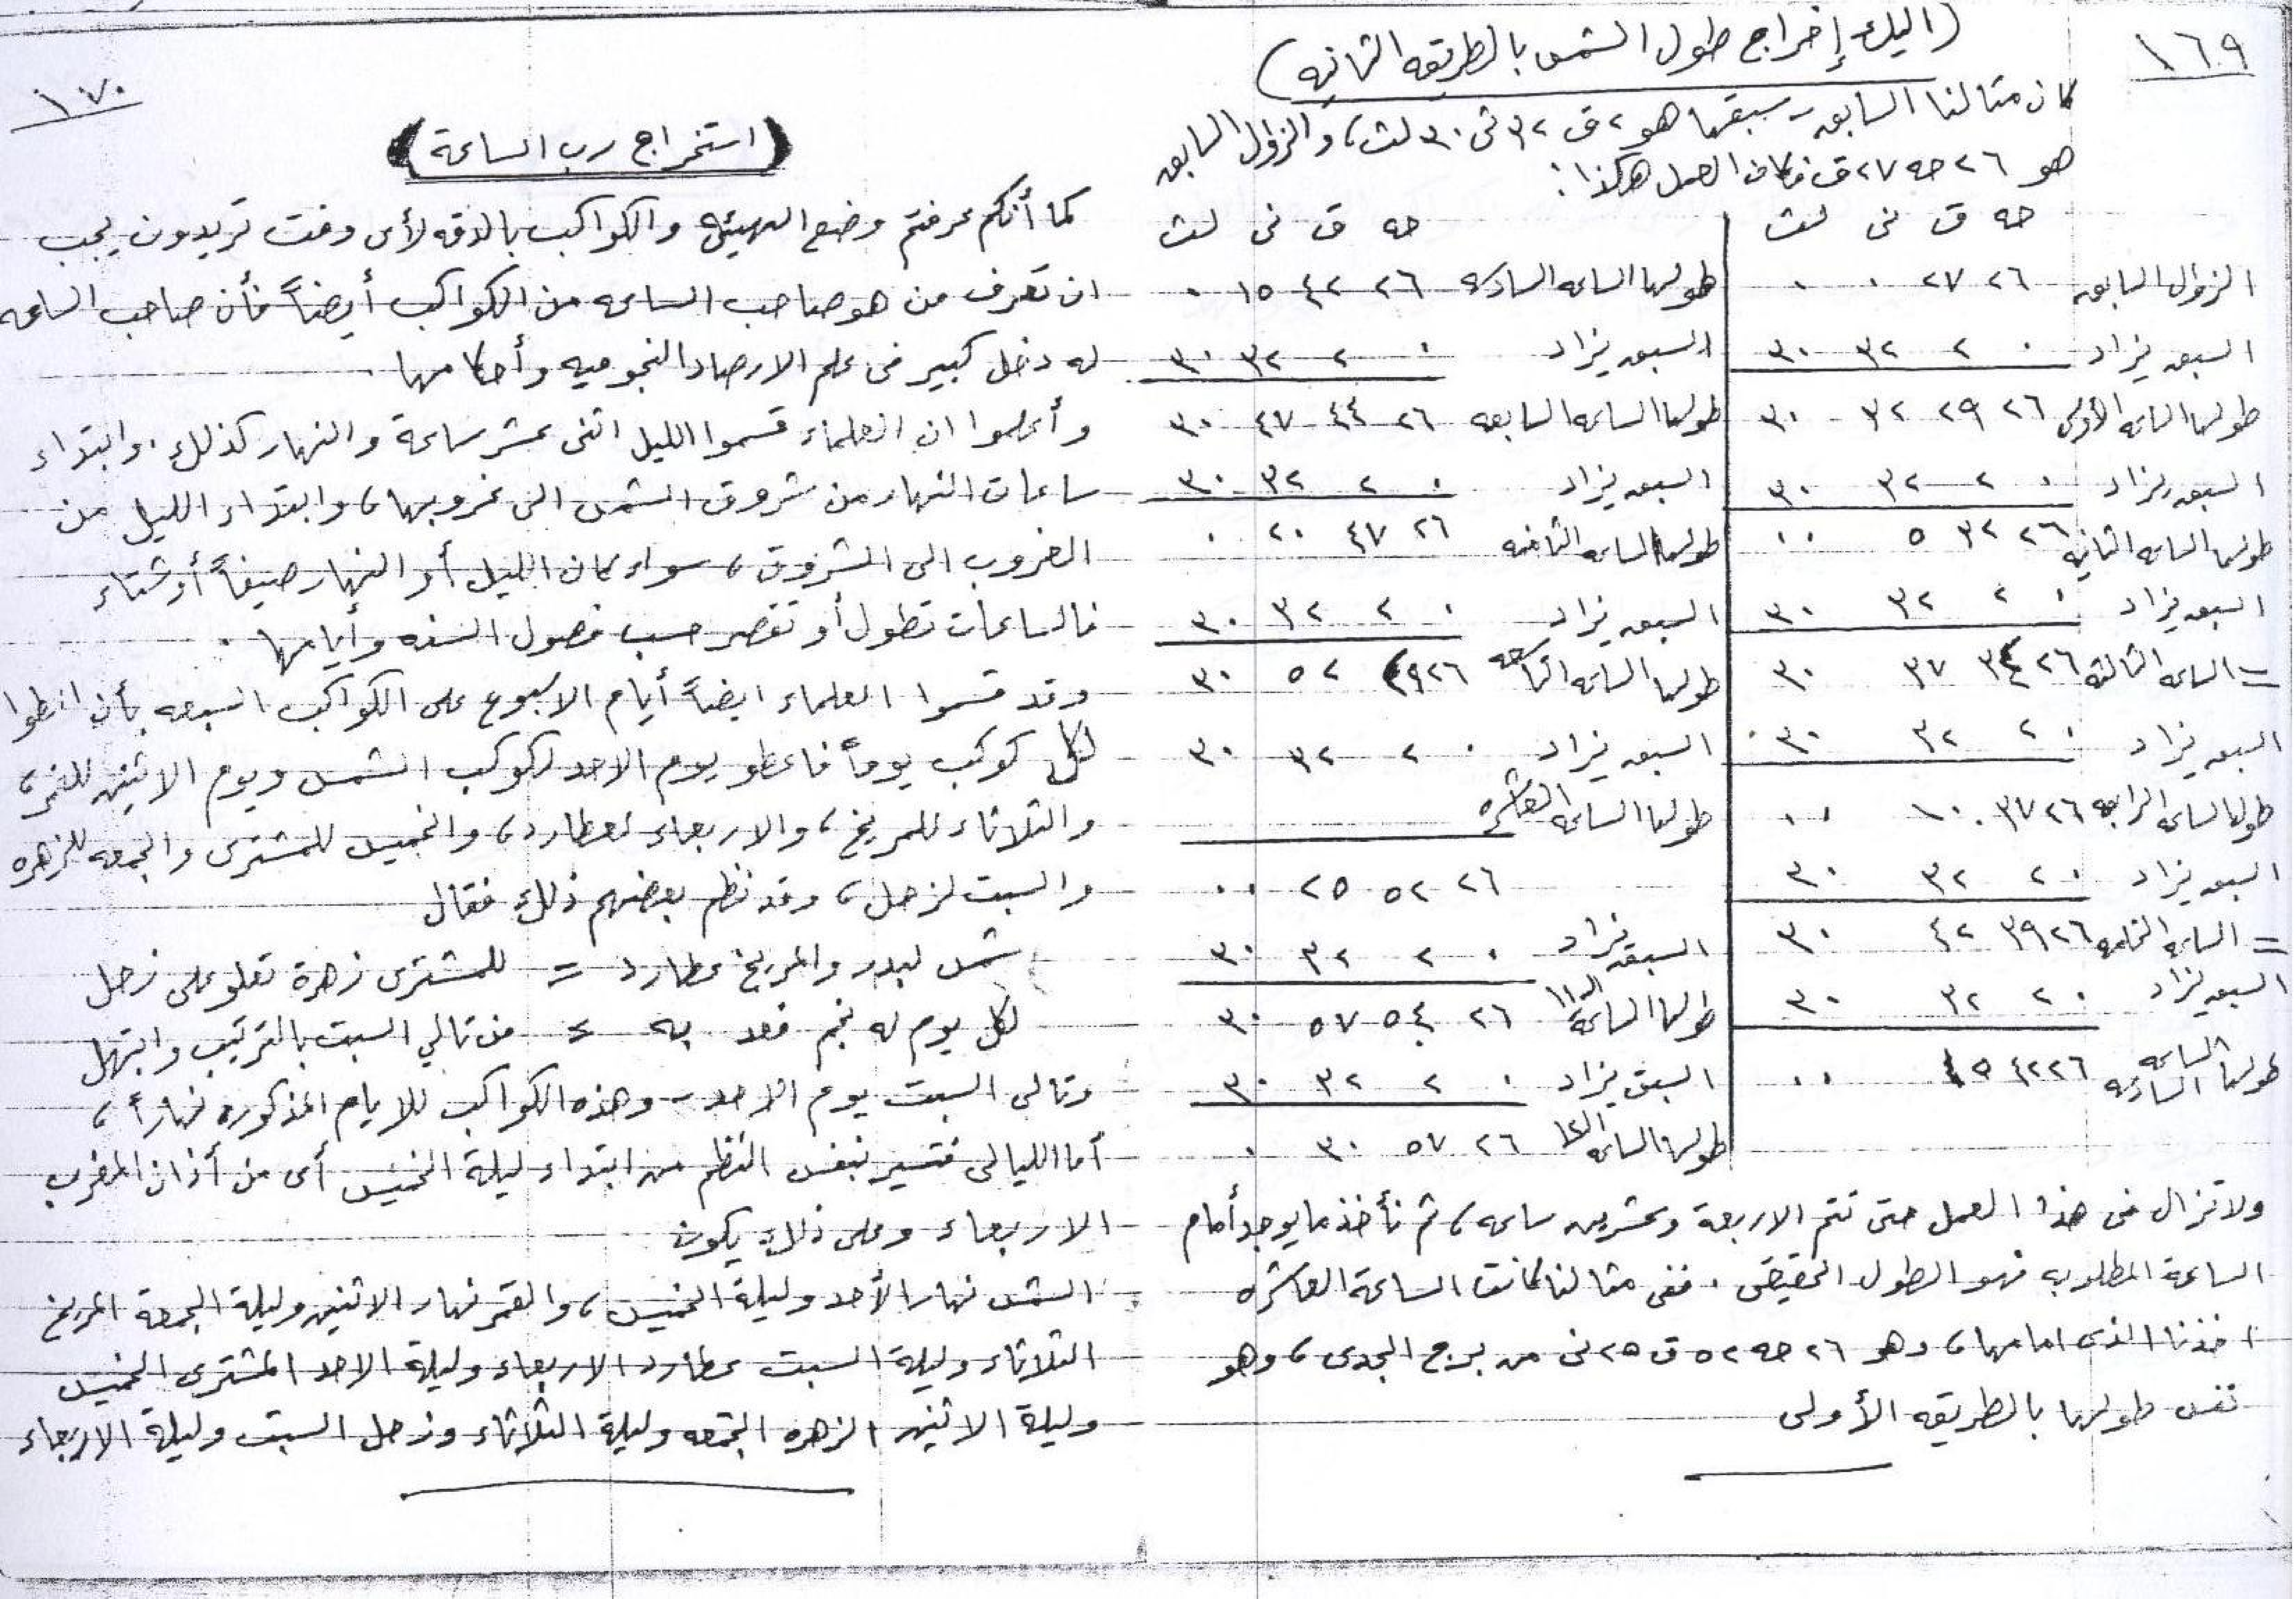 ١٦٩
(اليك إخراج طول الشمس بالطريقه الثانيه)
كان مثالنا السابق سبقها هو ٢ ق ٣٢ ني ٣٠ لث، والزوال السابق
هو ٢٦ حه ٢٧ ق فكان العمل هكذا:
حه ق ني لث
الزوال السابق ٢٦ ٢٧ ٠ ٠
السبق يزاد ٠ ٢ ٣٢ ٣٠
طولها الساعه الأولى ٢٦ ٢٩ ٣٢ ٣٠
السبق يزاد ٠ ٢ ٣٢ ٣٠
طولها الساعه الثانيه ٢٦ ٣٢ ٥ ٠٠
السبق يزاد ٠ ٢ ٣٢ ٣٠
= الساعه الثالثه ٢٦ ٣٤ ٣٧ ٣٠
السبق يزاد ٠ ٢ ٣٢ ٣٠
طولها الساعه الرابعه ٢٦ ٣٧ ١٠ ٠٠
السبق يزاد ٠ ٢ ٣٢ ٣٠
= الساعه الخامسه ٢٦ ٣٩ ٤٢ ٣٠
السبق يزاد ٠ ٢ ٣٢ ٣٠
طولها الساعه السادسه ٢٦ ٤٢ ١٥ ٠٠
حه ق ني لث
طولها الساعه السادسه ٢٦ ٤٢ ١٥ ٠
السبق يزاد ٠ ٢ ٣٢ ٣٠
طولها الساعه السابعه ٢٦ ٤٤ ٤٧ ٣٠
السبق يزاد ٠ ٢ ٣٢ ٣٠
طولها الساعه الثامنه ٢٦ ٤٧ ٢٠ ٠
السبق يزاد ٠ ٢ ٣٢ ٣٠
طولها الساعه التاسعه ٢٦ ٤٩ ٥٢ ٣٠
السبق يزاد ٠ ٢ ٣٢ ٣٠
طولها الساعه العاشره
٢٦ ٥٢ ٢٥ ٠٠
السبق يزاد ٠ ٢ ٣٢ ٣٠
طولها الساعه الـ١١ ٢٦ ٥٤ ٥٧ ٣٠
السبق يزاد ٠ ٢ ٣٢ ٣٠
طولها الساعه الـ١٢ ٢٦ ٥٧ ٣٠ ٠
ولا تزال في هذا العمل حتى تتم الاربعة وعشرين ساعه، ثم نأخذ ما يوجد أمام
الساعة المطلوبه فهو الطول الحقيقي. ففي مثالنا كانت الساعة العاشره
اخذنا الذي امامها، وهو ٢٦ حه ٥٢ ق ٢٥ ني من برج الجدي، وهو
نفس طولها بالطريقه الأولى
١٧٠
(استخراج رب الساعة)
كما أنكم عرفتم وضع الهيئه والكواكب بالدقه لأى وقت تريدون يجب
ان تعرف من هو صاحب الساعه من الكواكب أيضاً فأن صاحب الساعه
له دخل كبير في علم الارصاد النجوميه وأحكامها.
وأعلموا ان العلماء قسموا الليل اثنى عشر ساعة والنهار كذلك. وابتداء
ساعات النهار من شروق الشمس الى غروبها، وابتداء الليل من
الغروب الى الشروق، سواء كان الليل أو النهار صيفاً أو شتاء
فالساعات تطول أو تقصر حسب فصول السنه وأيامها.
وقد قسموا العلماء ايضاً أيام الاسبوع على الكواكب السبعه بأن اعطوا
لكل كوكب يوماً فاعطو يوم الاحد لكوكب الشمس ويوم الاثنين للقمر،
والثلاثاء للمريخ، والاربعاء لعطارد، والخميس للمشترى والجمعه للزهره
والسبت لزحل، وقد نظم بعضهم ذلك فقال
شمس لبدر والمريخ عطارد = للمشترى زهرة تعلو على زحل
لكل يوم له نجم فعد به = من تالي السبت بالترتيب وابتهل
وتالى السبت يوم الاحد - وهذه الكواكب للايام المذكوره نهاراً،
أما الليالى فتسير بنفس النظم من ابتداء ليلة الخميس أى من أذان المغرب
الاربعاء وعلى ذلك يكون
الشمس نهار الأحد وليلة الخميس، والقمر نهار الاثنين وليلة الجمعة المريخ
الثلاثاء وليلة السبت عطارد الاربعاء وليلة الاحد المشترى الخميس
وليلة الاثنين الزهره الجمعه وليلة الثلاثاء وزحل السبت وليلة الاربعاء